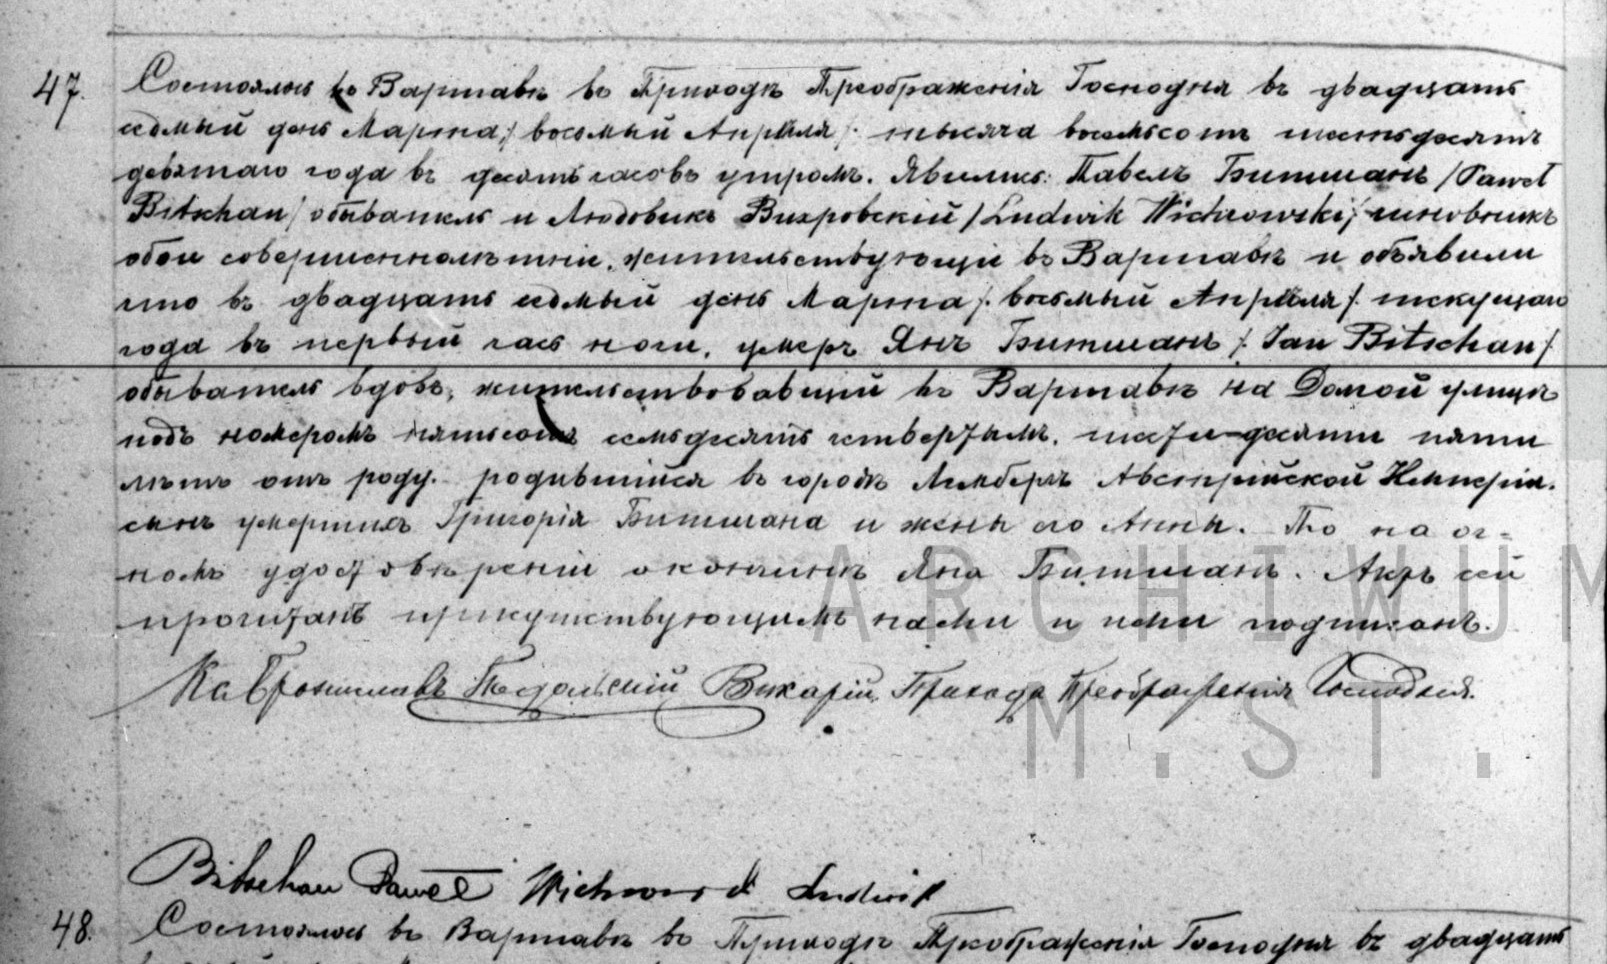 47. Состоялось въ Варшавѣ въ Приходѣ Преображенія Господня въ двадцать
седмый день Марта /: восьмый Апрѣля /: тысяча восемьсотъ шестьдесятъ
девятаго года въ десять часовъ утромъ. Явились: Павелъ Битшанъ /Paweł
Bitschan/ обыватель и Людовикъ Вихровскій /Ludwik Wichrowski/ чиновникъ
обои совершеннолѣтніи, жительствующіе въ Варшавѣ и объявили
что въ двадцать седмый день Марта /: восьмый Апрѣля /: текущаго
года въ первый часъ ночи, умеръ Янъ Битшанъ /: Jan Bitschan /:
обыватель вдовъ, жительствовавщій въ Варшавѣ на Долгой улицѣ
подъ номеромъ пятьсотъ семьдесятъ четвертымъ, шести-десяти пяти
лѣтъ отъ роду. родившійся въ городѣ Лембергъ Австрійской Имперіи.
сынъ умершихъ Григорія Битшана и жены его Анны. По на оч=
номъ удостовѣреніи о кончинѣ Яна Битшанъ. Актъ сей
прочитанъ присутствующимъ нами и ими подписанъ.
Кс. Брониславъ Подольскій Викарій Прихода Преображенія Господня.
Bitschan Paweł Wichrowski Ludwik
48. Состоялось въ Варшавѣ въ Приходѣ Преображенія Господня въ двадцать
ARCHIWUM
M.ST.